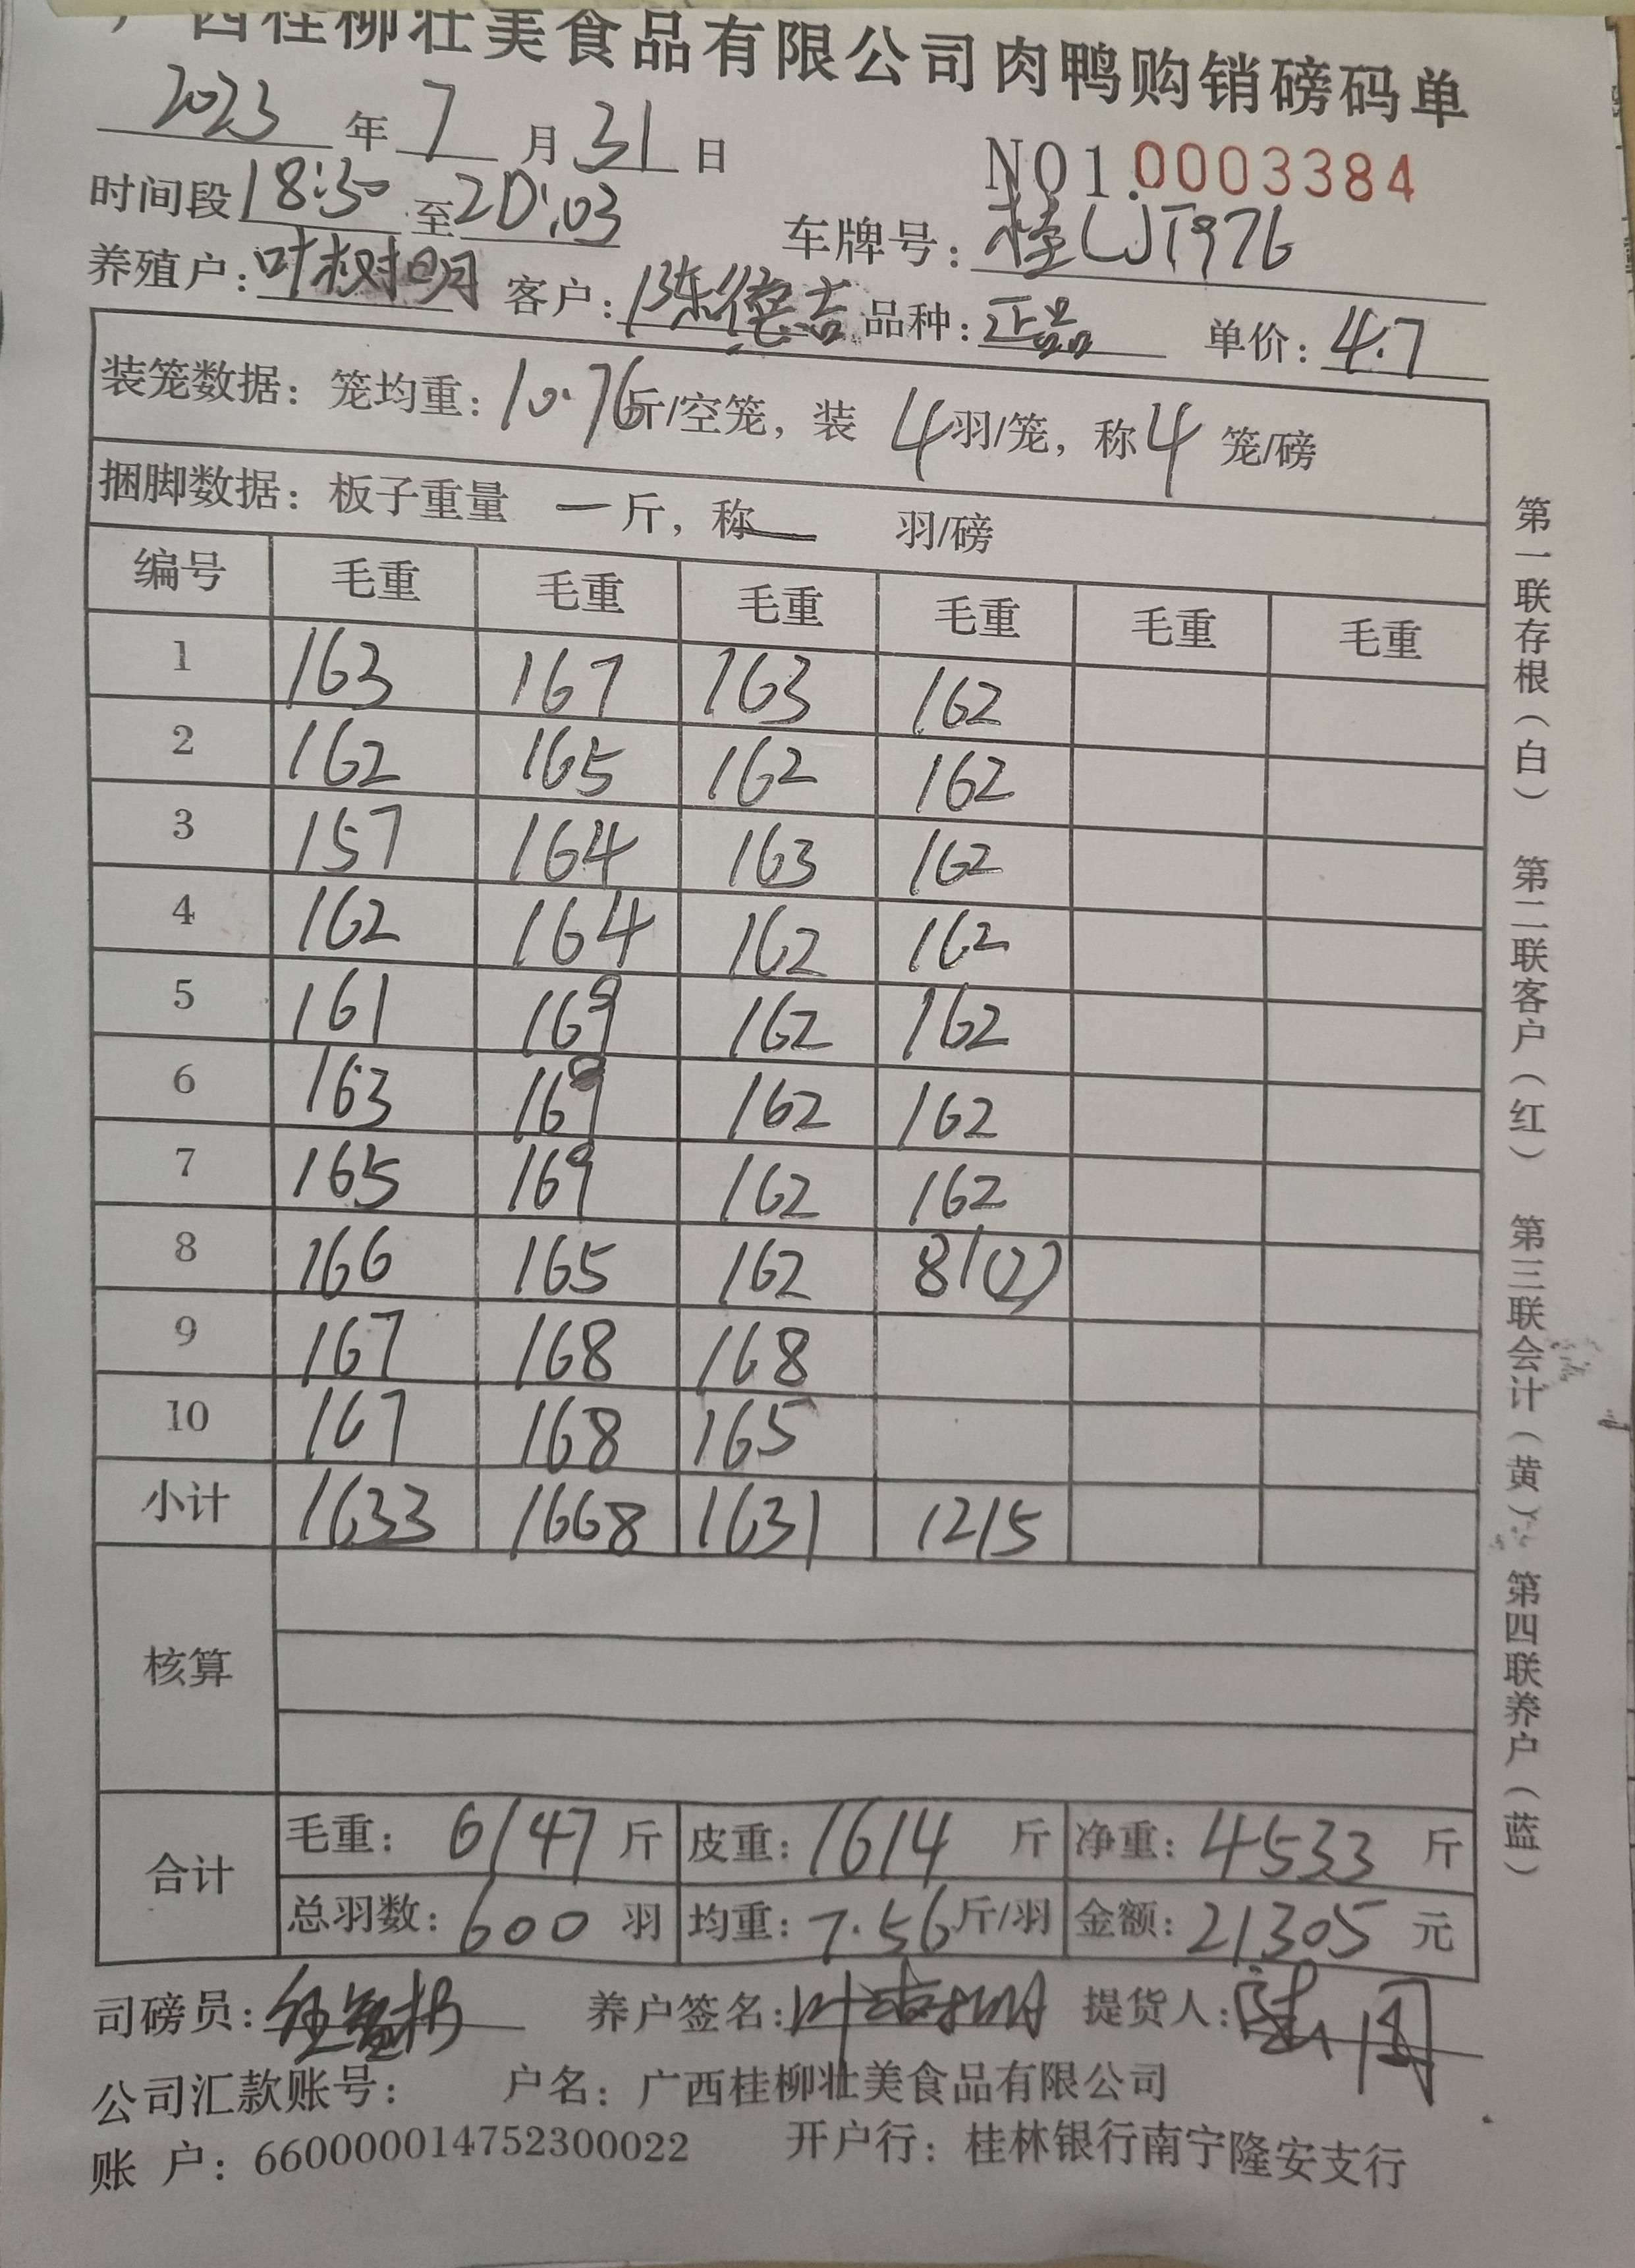 广西桂柳壮美食品有限公司肉鸭购销磅码单
2023年7月31日
NO1.0003384
时间段18:50至20:03 车牌号:桂LJT976
养殖户:叶树明 客户:陈德吉 品种:正品 单价:4.7
装笼数据:笼均重:10.76斤/空笼,装4羽/笼,称4笼/磅
捆脚数据:板子重量 一斤,称— 羽/磅
编号 毛重 毛重 毛重 毛重 毛重 毛重
1 163 167 163 162
2 162 165 162 162
3 157 164 163 162
4 162 164 162 162
5 161 169 162 162
6 163 169 162 162
7 165 169 162 162
8 166 165 162 81(2)
9 167 168 168
10 167 168 165
小计 1633 1668 1631 1215
核算
合计
毛重:6147斤 皮重:1614斤 净重:4533斤
总羽数:600羽 均重:7.56斤/羽 金额:21305元
司磅员: 养户签名:叶树明 提货人:
公司汇款账号: 户名:广西桂柳壮美食品有限公司
账 户:660000014752300022 开户行:桂林银行南宁隆安支行
第一联存根(白) 第二联客户(红) 第三联会计(黄) 第四联养户(蓝)